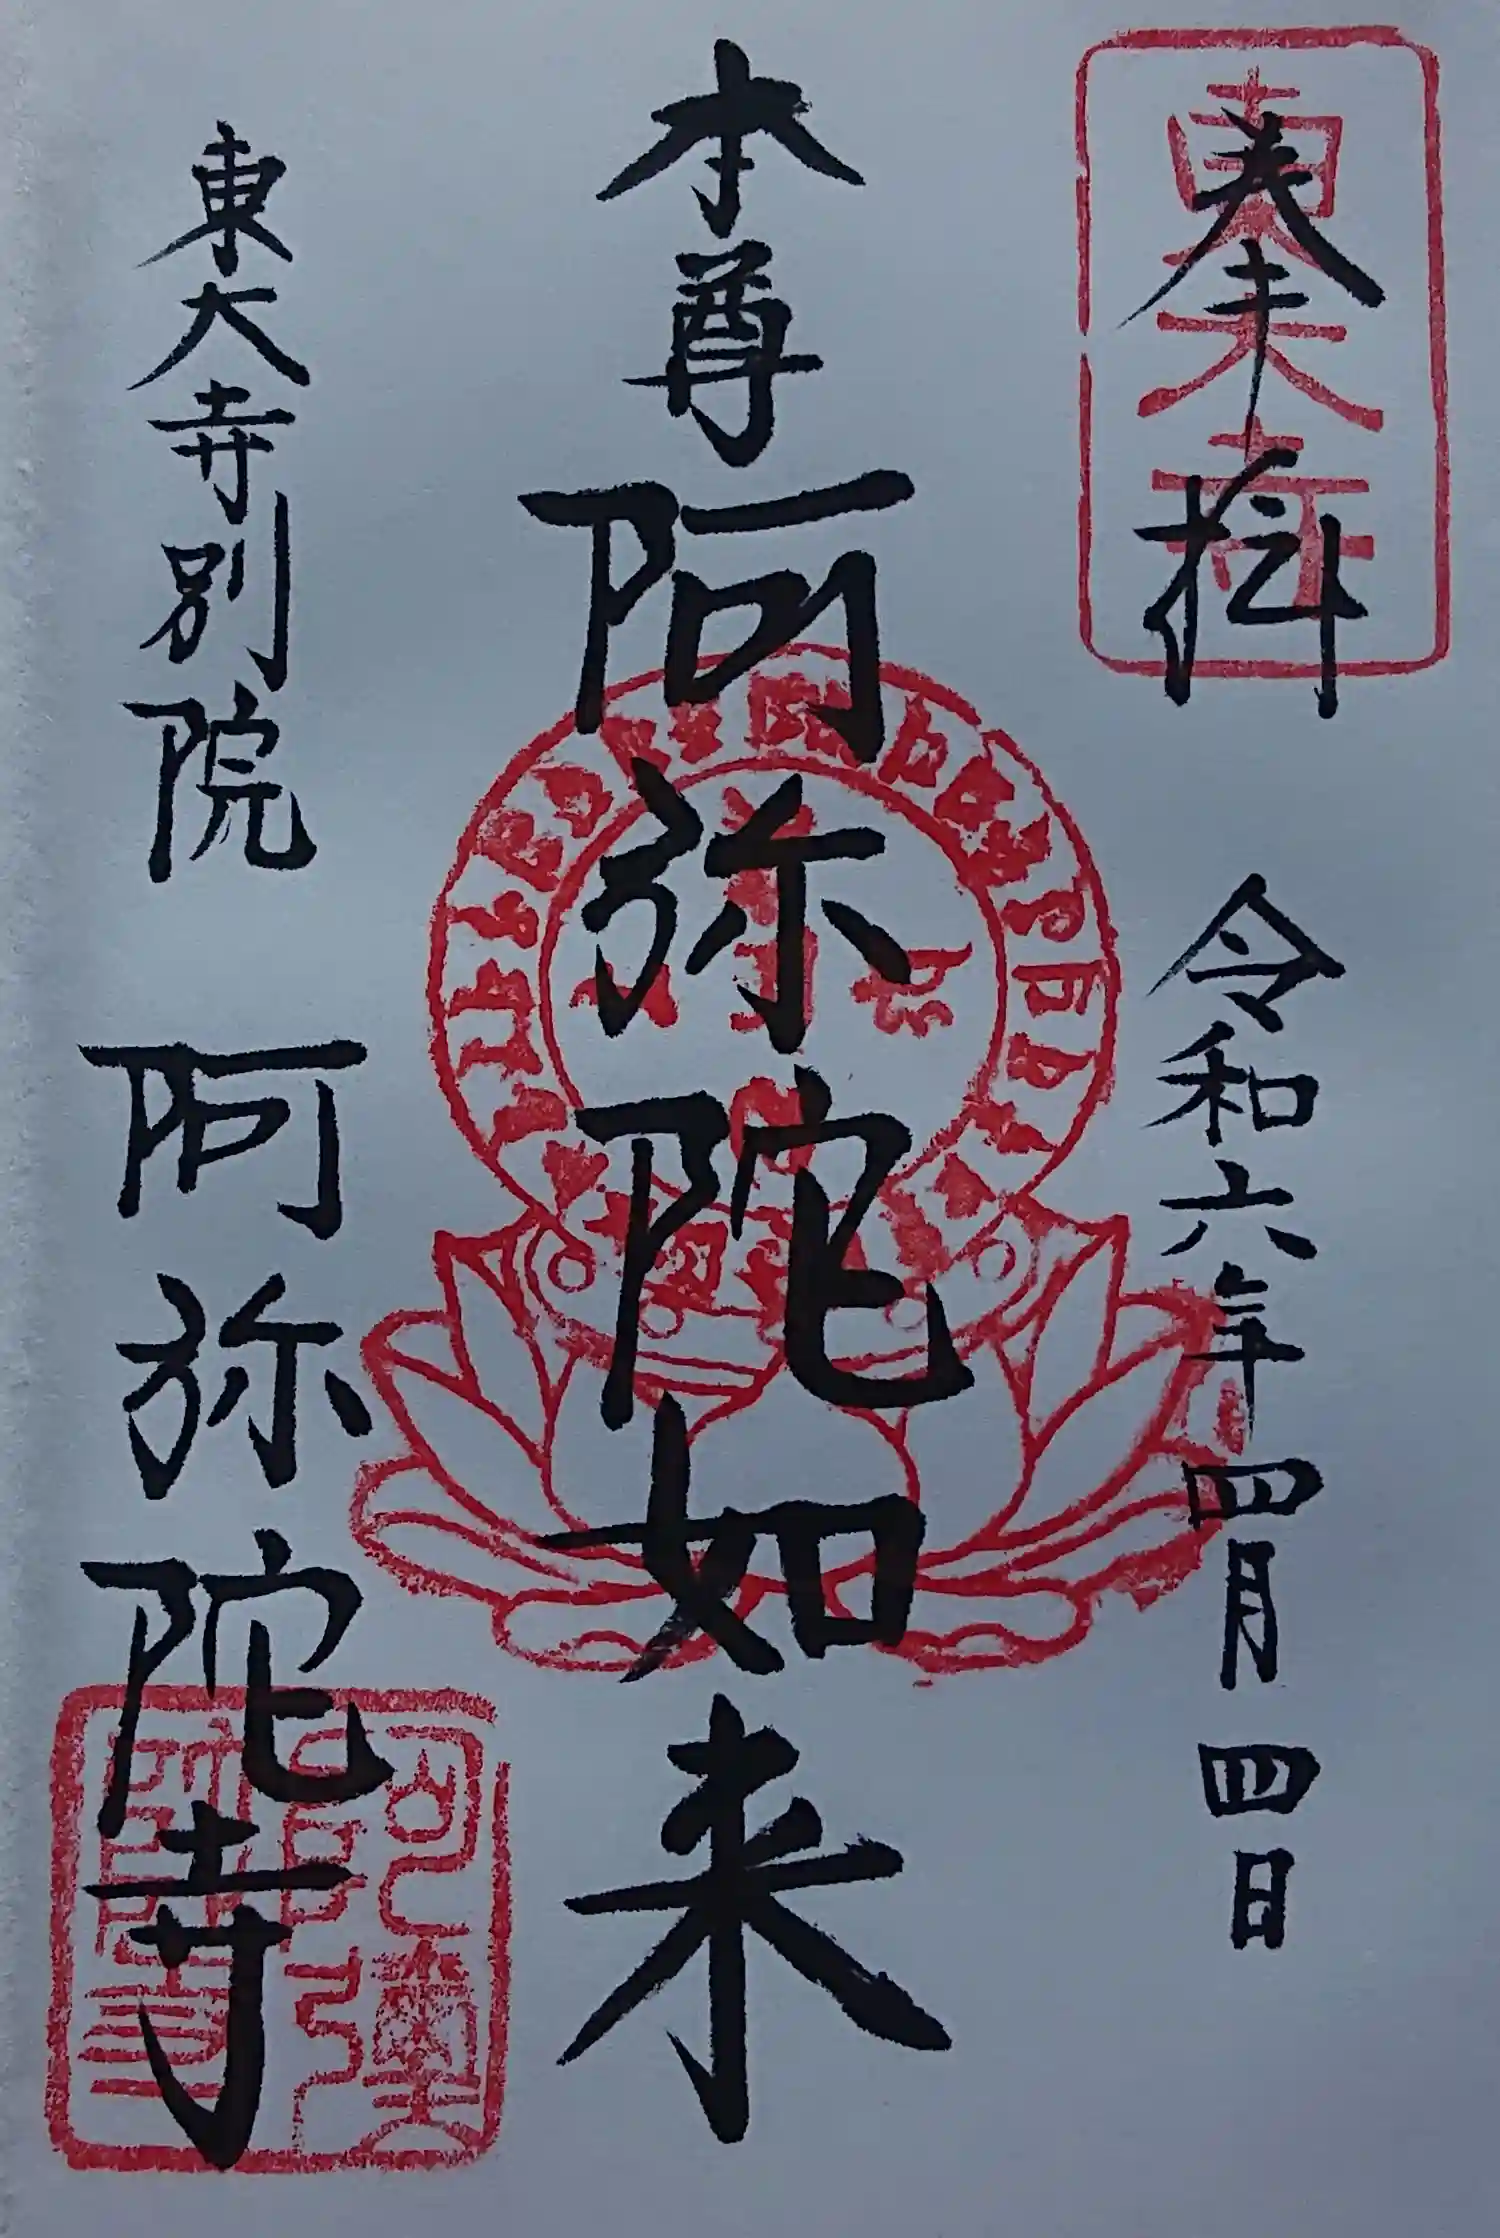 奉拝 令和六年四月四日
東大寺
本尊阿弥陀如来
東大寺別院 阿弥陀寺
阿彌陀寺